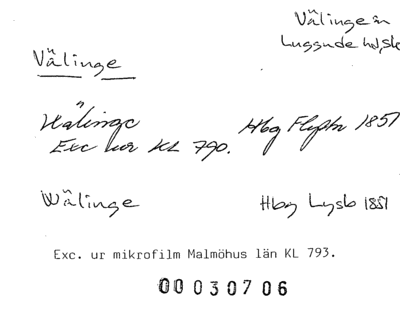 Välinge sn
Luggude hd, Sk
Välinge
Wälinge Hbg 1851
Exc ur KL 790.
Wälinge Hbg Lysb 1851
Exc. ur mikrofilm Malmöhus län KL 793.
00030706